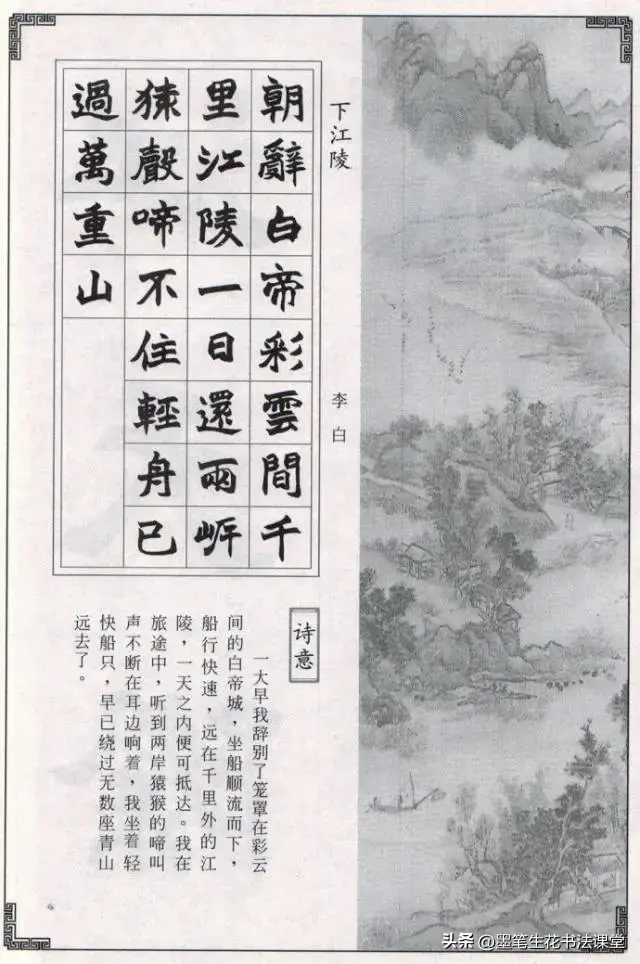 下江陵
李白
朝辭白帝彩雲間千
里江陵一日還兩岸
猿聲啼不住輕舟已
過萬重山
诗意
一大早我辞别了笼罩在彩云
间的白帝城，坐船顺流而下，
船行快速，远在千里外的江
陵，一天之内便可抵达。我在
旅途中，听到两岸猿猴的啼叫
声不断在耳边响着，我坐着轻
快船只，早已绕过无数座青山
远去了。
头条 @墨笔生花书法课堂